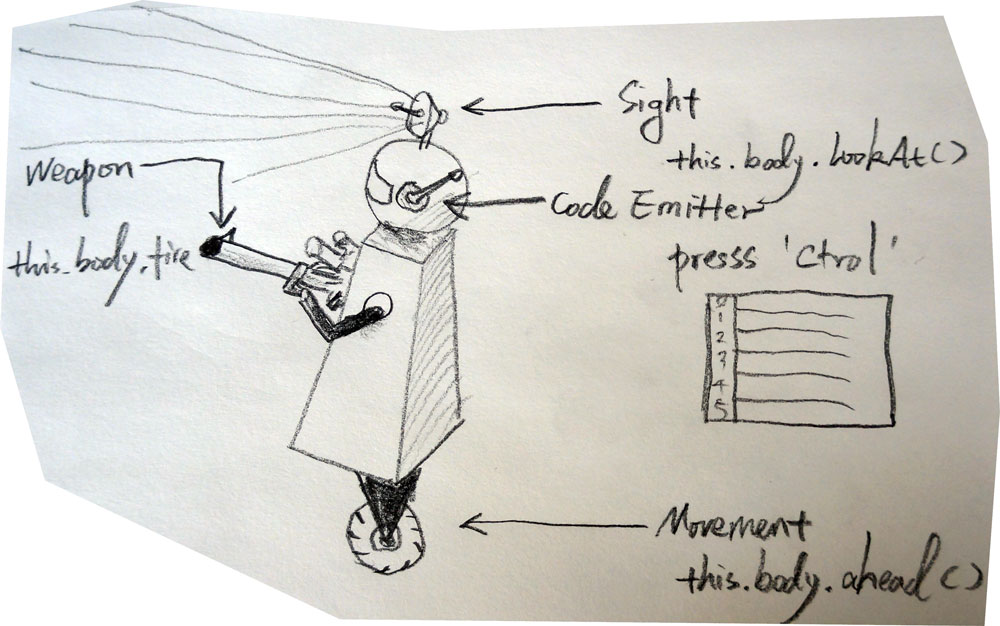 Sight
this.body.lookAt()
Weapon
this.body.fire
Code Emitter
presss 'Ctrol'
0
1
2
3
4
5
Movement
this.body.ahead()